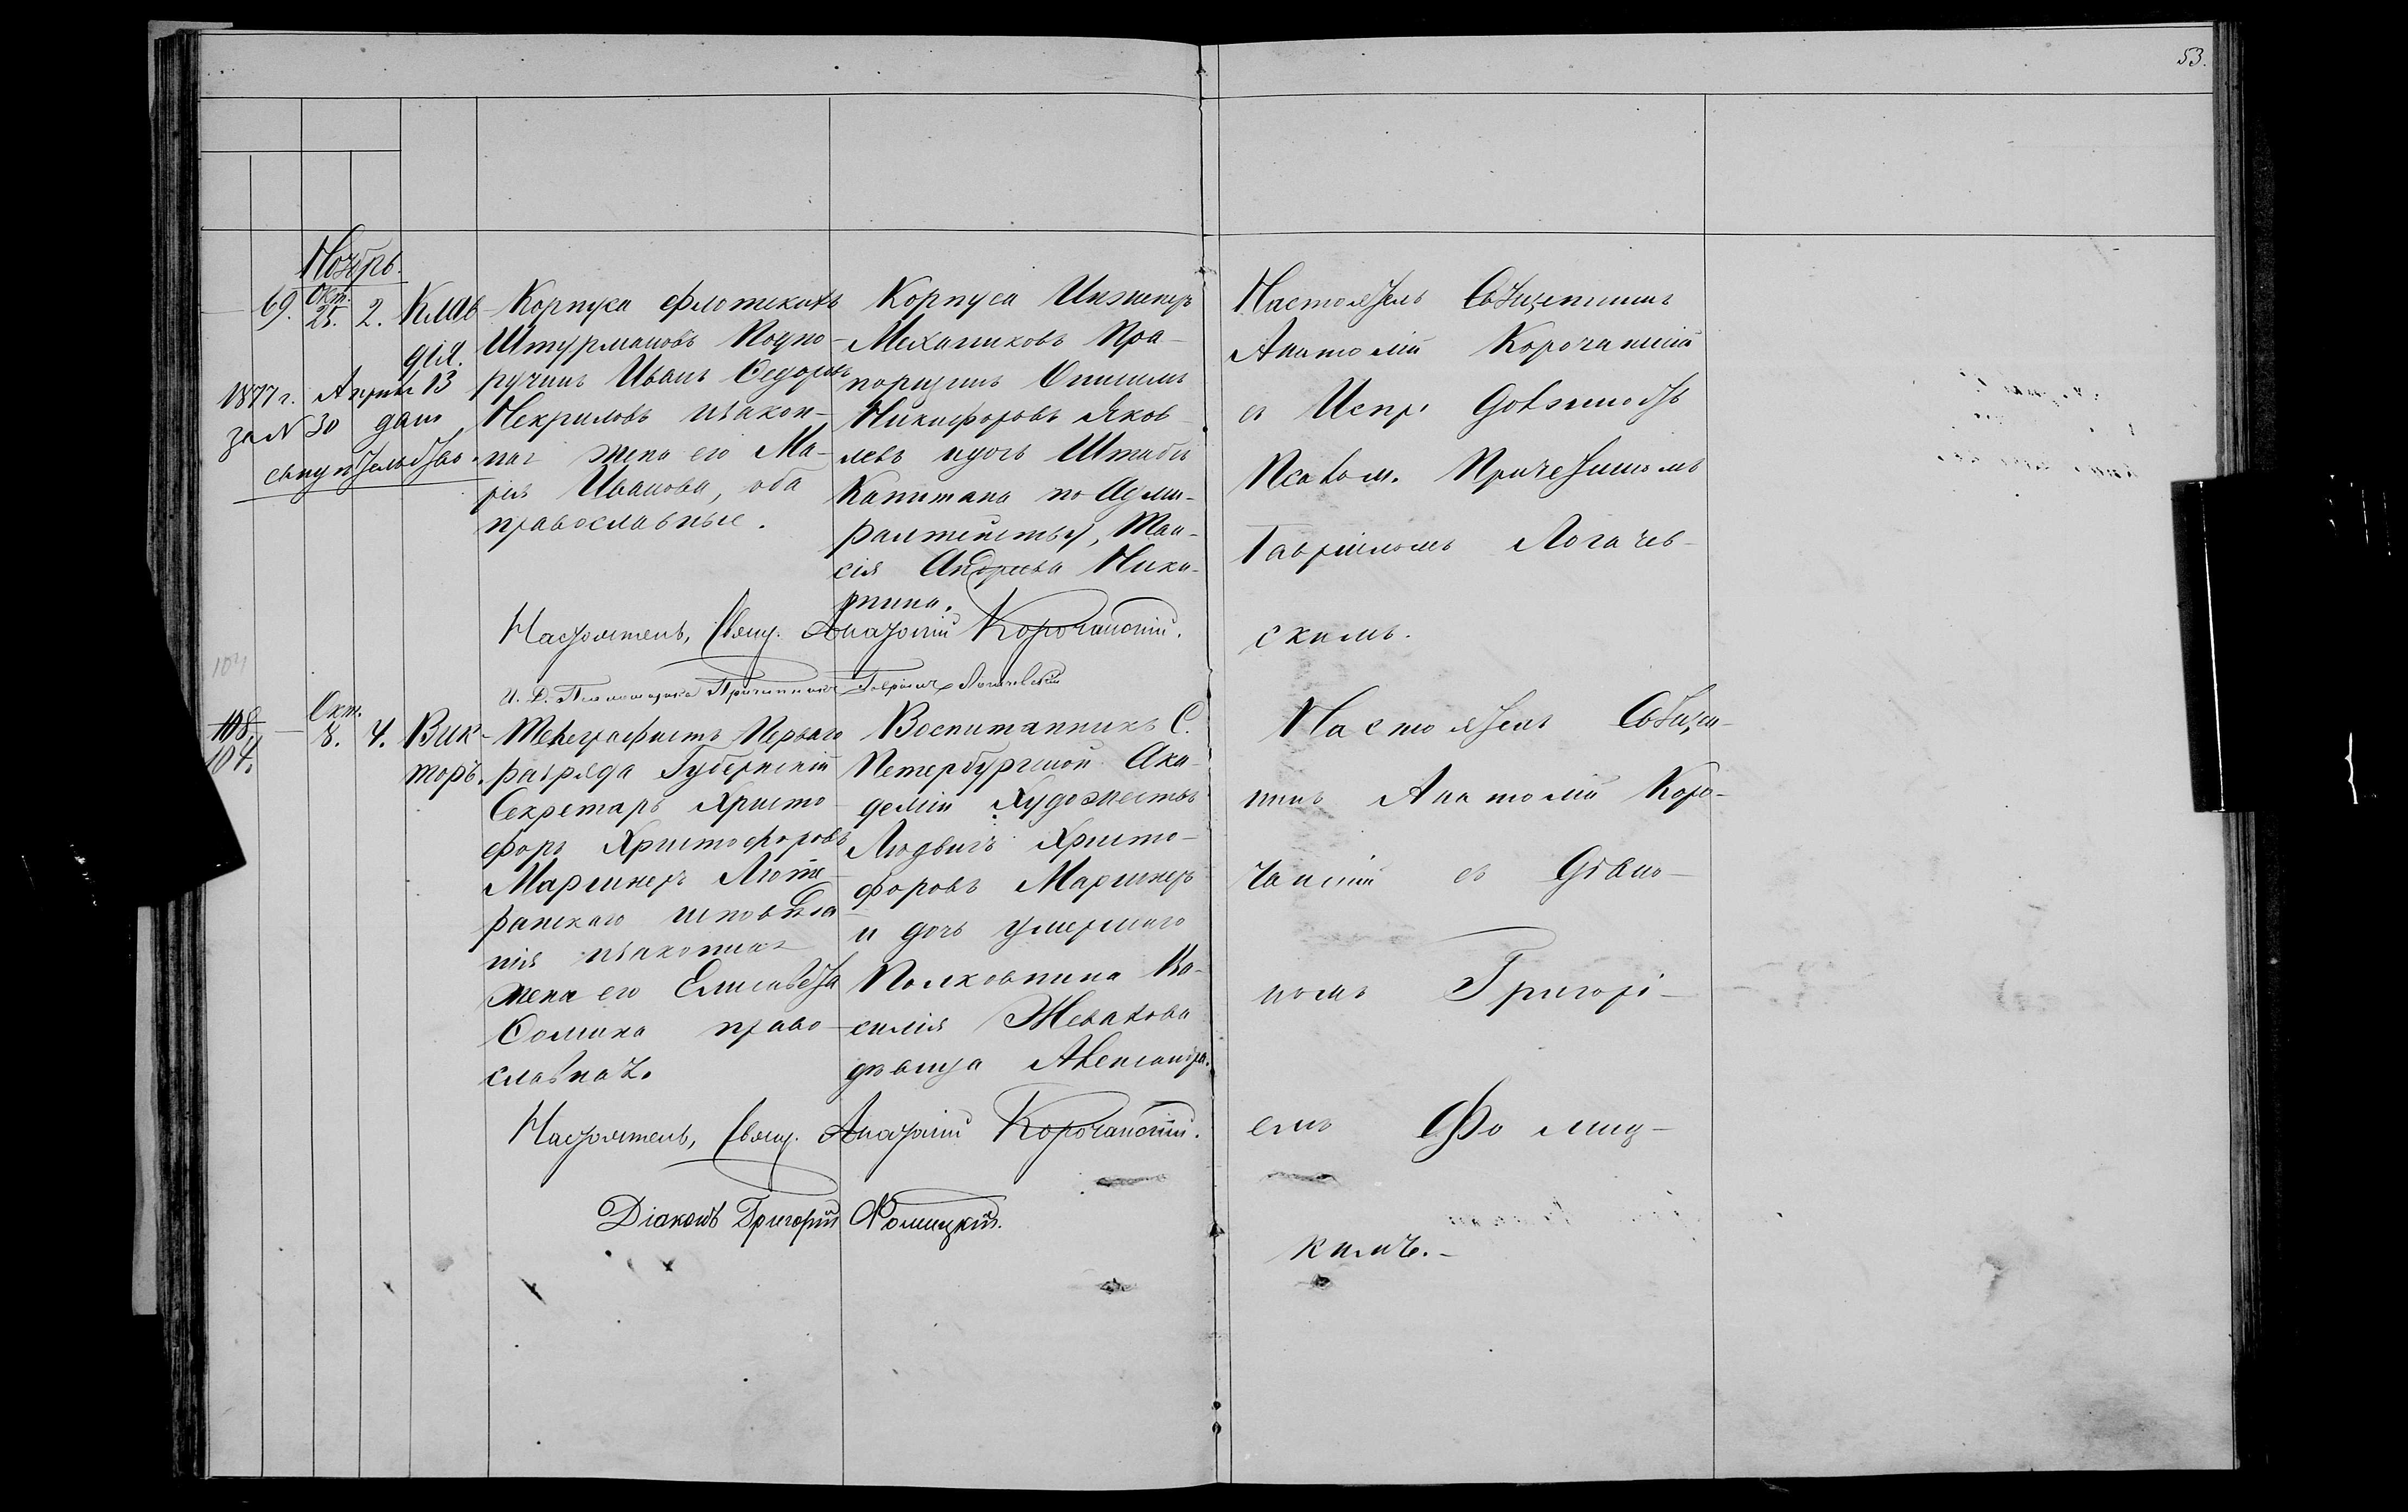 53.
Ноябрь.
69. Окт. 25. 2. Клав-
дія.
1877 г. Апрѣля 13
за № 30 дано
свидѣтельство.
Корпуса флотскихъ
Штурмановъ Подпо-
ручикъ Иванъ Ѳедоровъ
Некрасовъ и законная
жена его Ма-
рія Иванова, оба
православные.
Корпуса Инженеръ
Механиковъ Пра-
порщикъ Онисимъ
Никифоровъ Яков
левъ и дочь Штабсъ
Капитана по Адми-
ралтейству, Таи-
сія Андреева Ники-
тина.
Настоятель Священникъ
Анатолій Корочанскій
съ Испр. Должность
Псалом. Причетникомъ
Гавріиломъ Логачев-
скимъ.
Настоятель, Свящ. Анатолій Корочанскій.
И. Д. Псаломщика Причетникъ Гавріилъ Логачевскій
104
108 — Окт. 8. 4. Вик-
104. торъ.
Телеграфистъ Перваго
разряда Губернскій
Секретарь Христо-
форъ Христофоровъ
Маринеръ Люте-
ранскаго исповѣда-
нія и законная
жена его Елисавета
Ѳомина право-
славная.
Воспитанникъ С.
Петербургской Ака-
деміи Художествъ
Людвигъ Христо-
форовъ Маринеръ
и дочь умершаго
Полковника Ва-
силія Жевахова
дѣвица Александра.
Настоятель Священ-
никъ Анатолій Коро-
чанскій съ Діако-
номъ Григорі-
емъ Фомиц-
кимъ.-
Настоятель, Свящ. Анатолій Корочанскій.
Діаконъ Григорій Фомицкій.